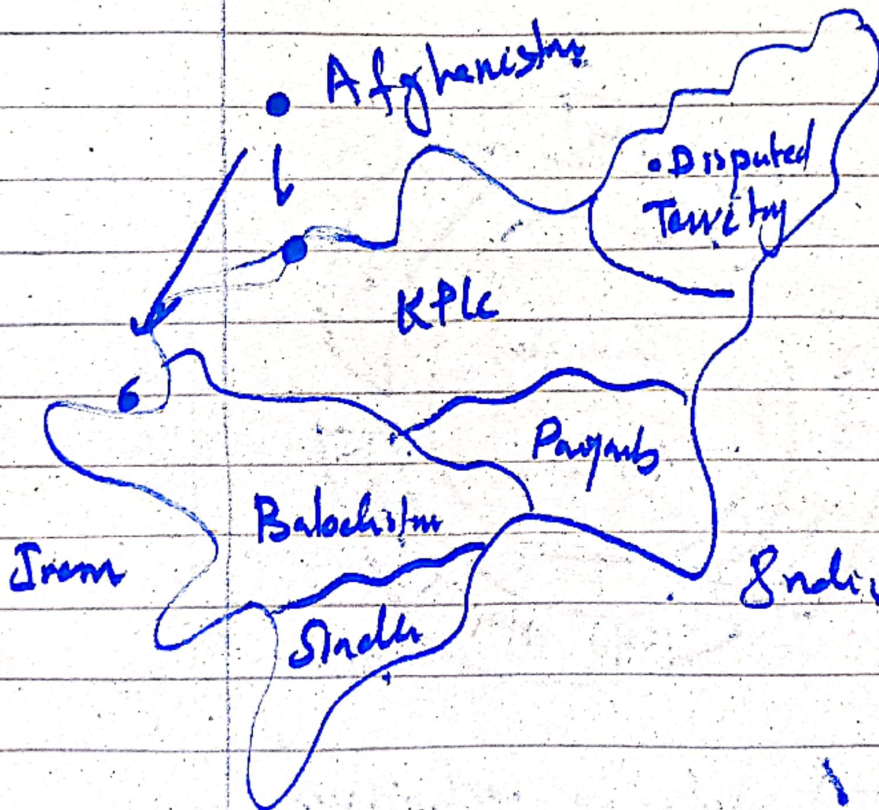 Afghanistan
• Disputed
Territory
KPK
Punjab
Balochistan
Iran
Sindh
Indi